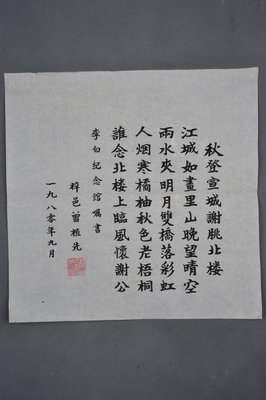 秋登宣城謝脁北楼
江城如畫里山晚望晴空
兩水夾明月雙橋落彩虹
人烟寒橘柚秋色老梧桐
誰念北楼上臨風懷謝公
李白纪念館囑書
梓邑曾植先
一九八〇年九月